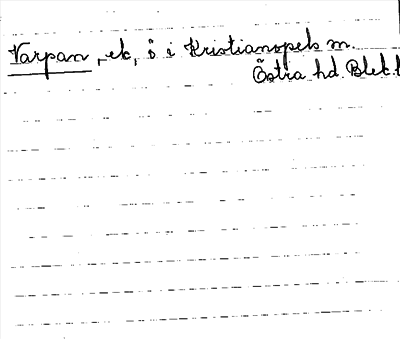 Varpan, ek, ö i Kristianopels m.
Östra hd. Blek. l